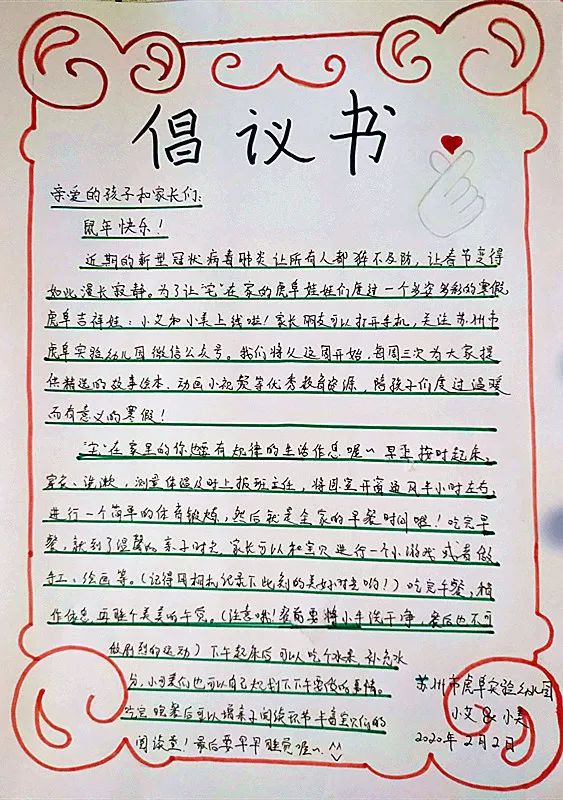 倡议书
亲爱的孩子和家长们：
鼠年快乐！
近期的新型冠状病毒肺炎让所有人都猝不及防，让春节变得
如此漫长寂静。为了让“宅”在家的虎阜娃娃们度过一个多姿多彩的寒假，
虎阜吉祥娃：小艾和小美上线啦！家长朋友可以打开手机，关注苏州市
虎阜实验幼儿园微信公众号。我们将从这周开始，每周三次为大家提
供精选的故事绘本、动画小视频等优秀教育资源，陪孩子们度过温暖
而有意义的寒假！
“宅”在家里的你也要有规律的生活作息喔～早上按时起床、
穿衣、洗漱，测量体温及时上报班主任，将卧室开窗通风半小时左右，
进行一个简单的体育锻炼，然后就是全家的早餐时间啦！吃完早
餐，就到了温馨的亲子时光，家长可以和宝贝进行一个小游戏或者做
手工、绘画等。（记得用相机记录下此刻的美好时光哟！）吃完午餐，稍
作休息，再睡个美美的午觉。（注意哦！餐前要将小手洗干净，餐后也不可
做剧烈的运动）下午起床后可以吃个水果，补充水
分，小可爱们也可以自己规划下下午要做的事情。
吃完晚餐后可以增亲子阅读环节丰富宝贝们的
阅读量！最后要早早睡觉喔～^^
苏州市虎阜实验幼儿园
小艾&小美
2020年2月2日